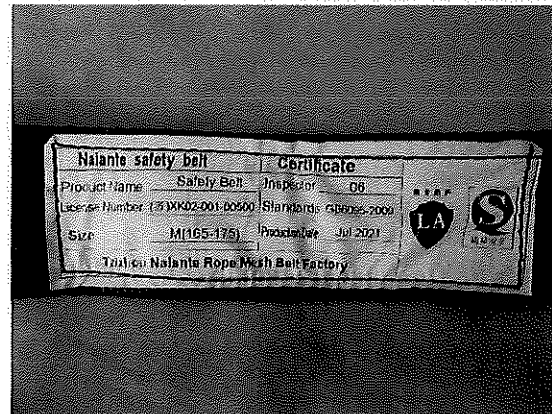 Nalante safety belt Certificate
Product Name Safety Belt Inspector 06
License Number XK02-001-00500 Standards GB6095-2009
Size M(165-175) Production Date Jul 2021
Nalante Rope Mesh Belt Factory
LA
S